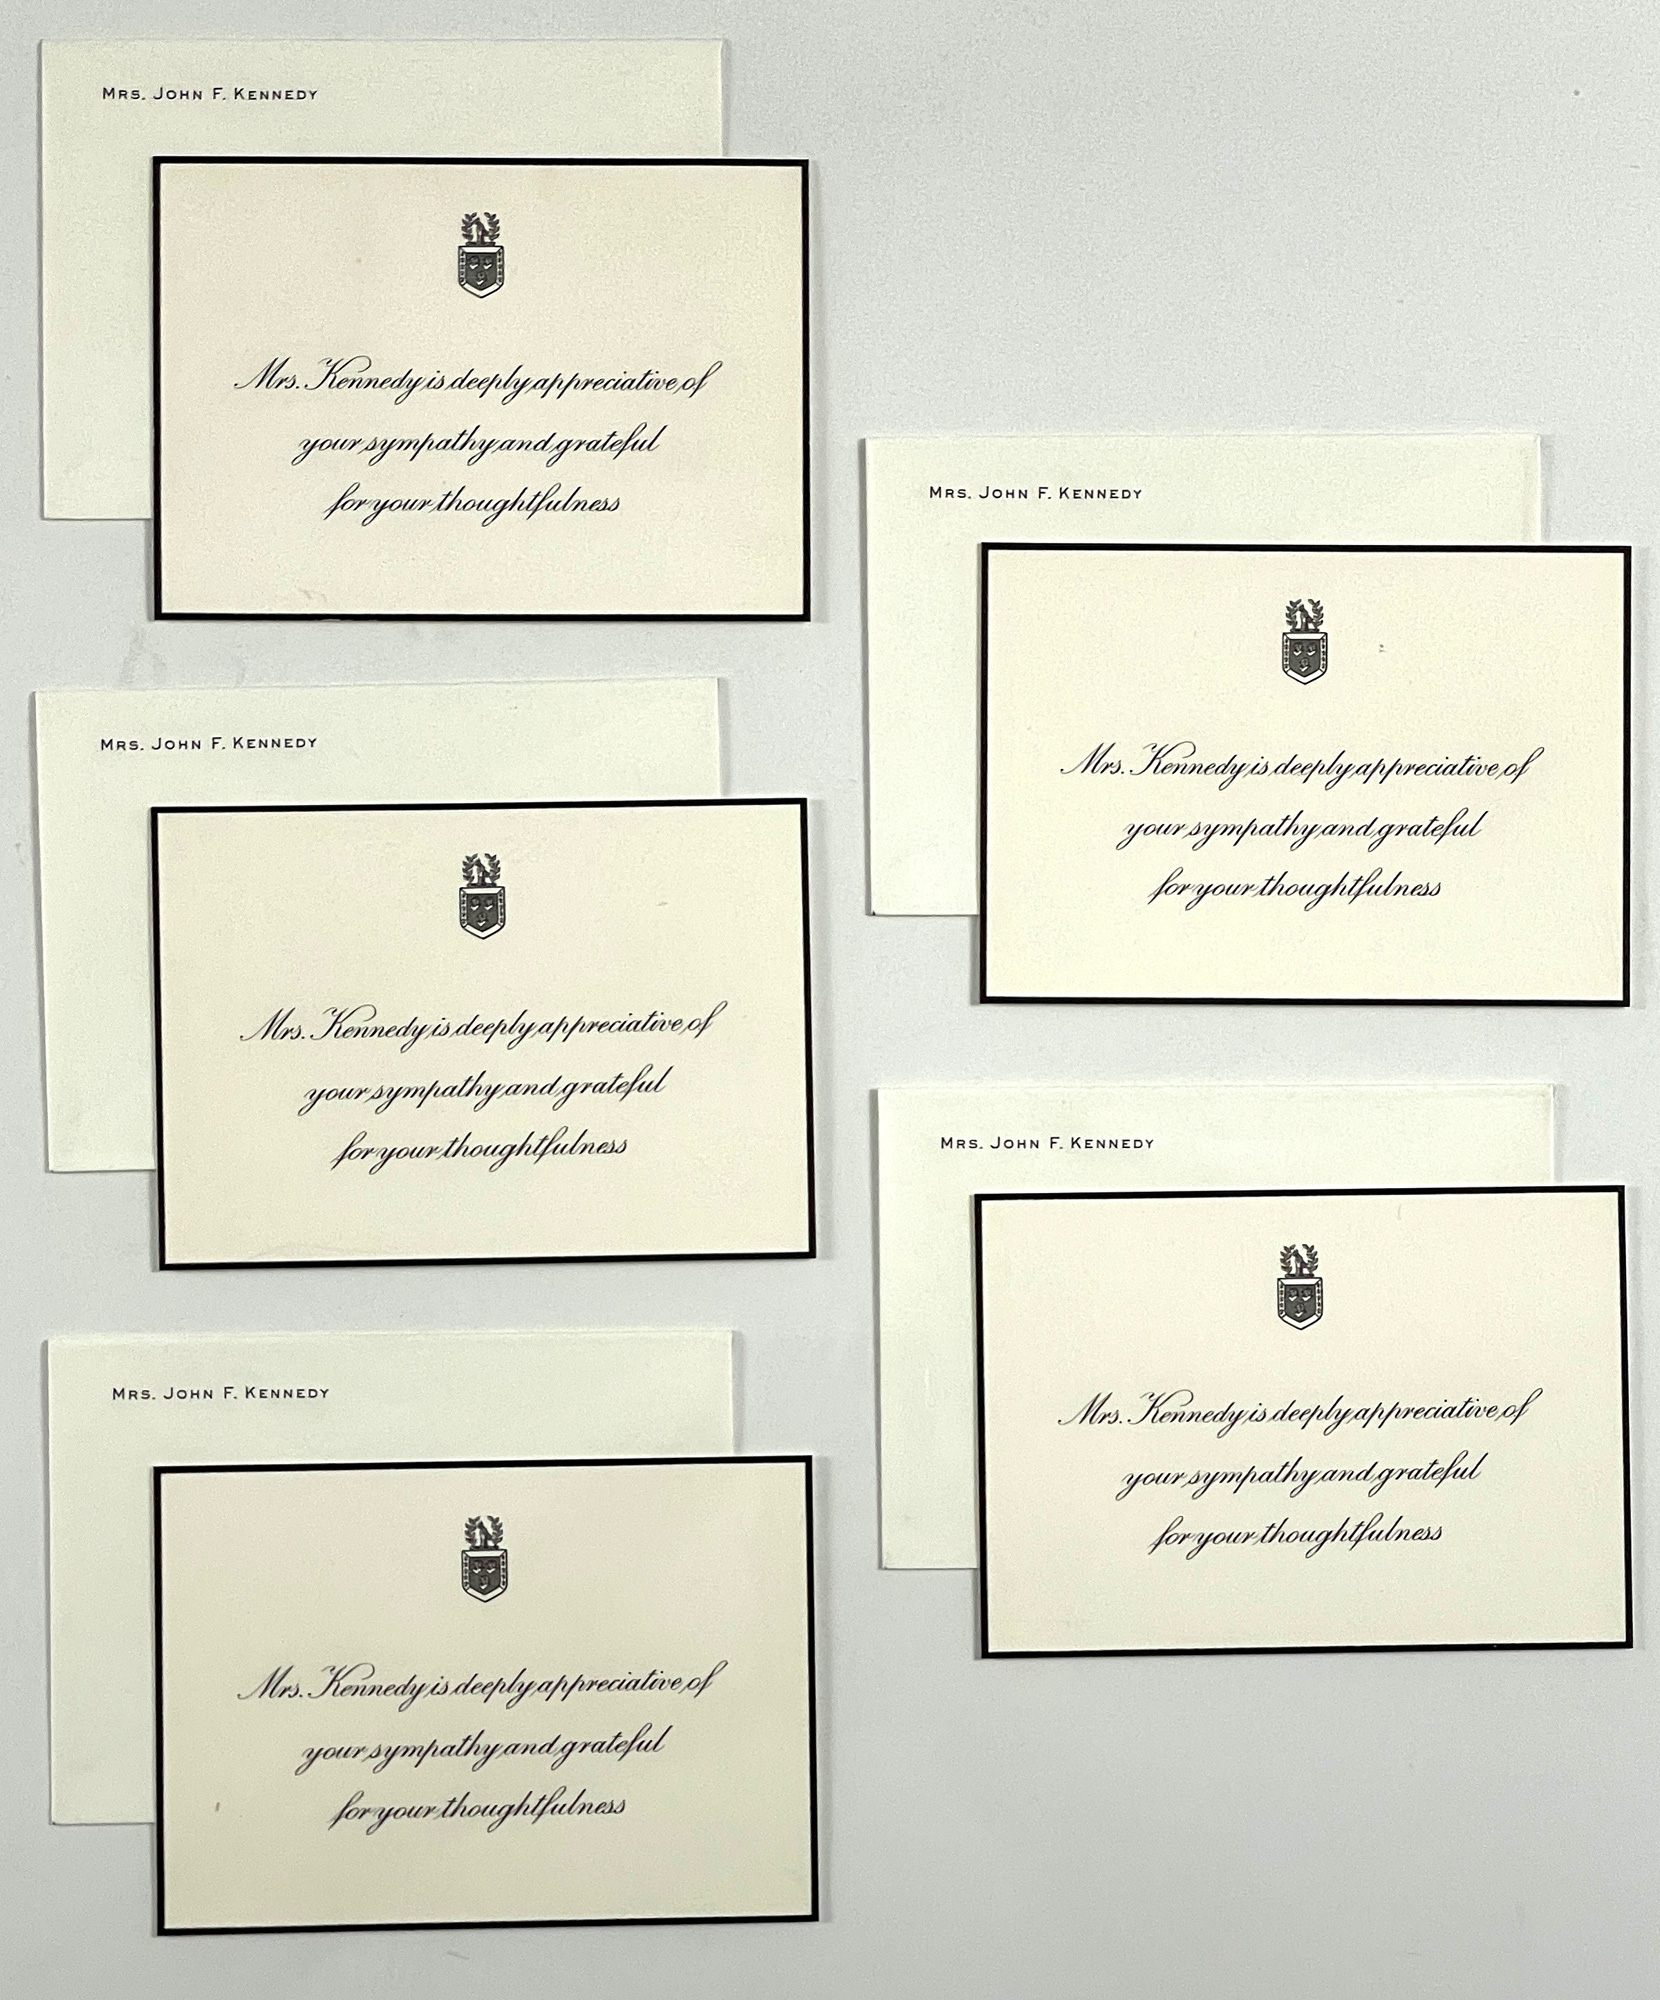 Mrs. John F. Kennedy
Mrs. Kennedy is deeply appreciative of
your sympathy and grateful
for your thoughtfulness
Mrs. John F. Kennedy
Mrs. Kennedy is deeply appreciative of
your sympathy and grateful
for your thoughtfulness
Mrs. John F. Kennedy
Mrs. Kennedy is deeply appreciative of
your sympathy and grateful
for your thoughtfulness
Mrs. John F. Kennedy
Mrs. Kennedy is deeply appreciative of
your sympathy and grateful
for your thoughtfulness
Mrs. John F. Kennedy
Mrs. Kennedy is deeply appreciative of
your sympathy and grateful
for your thoughtfulness